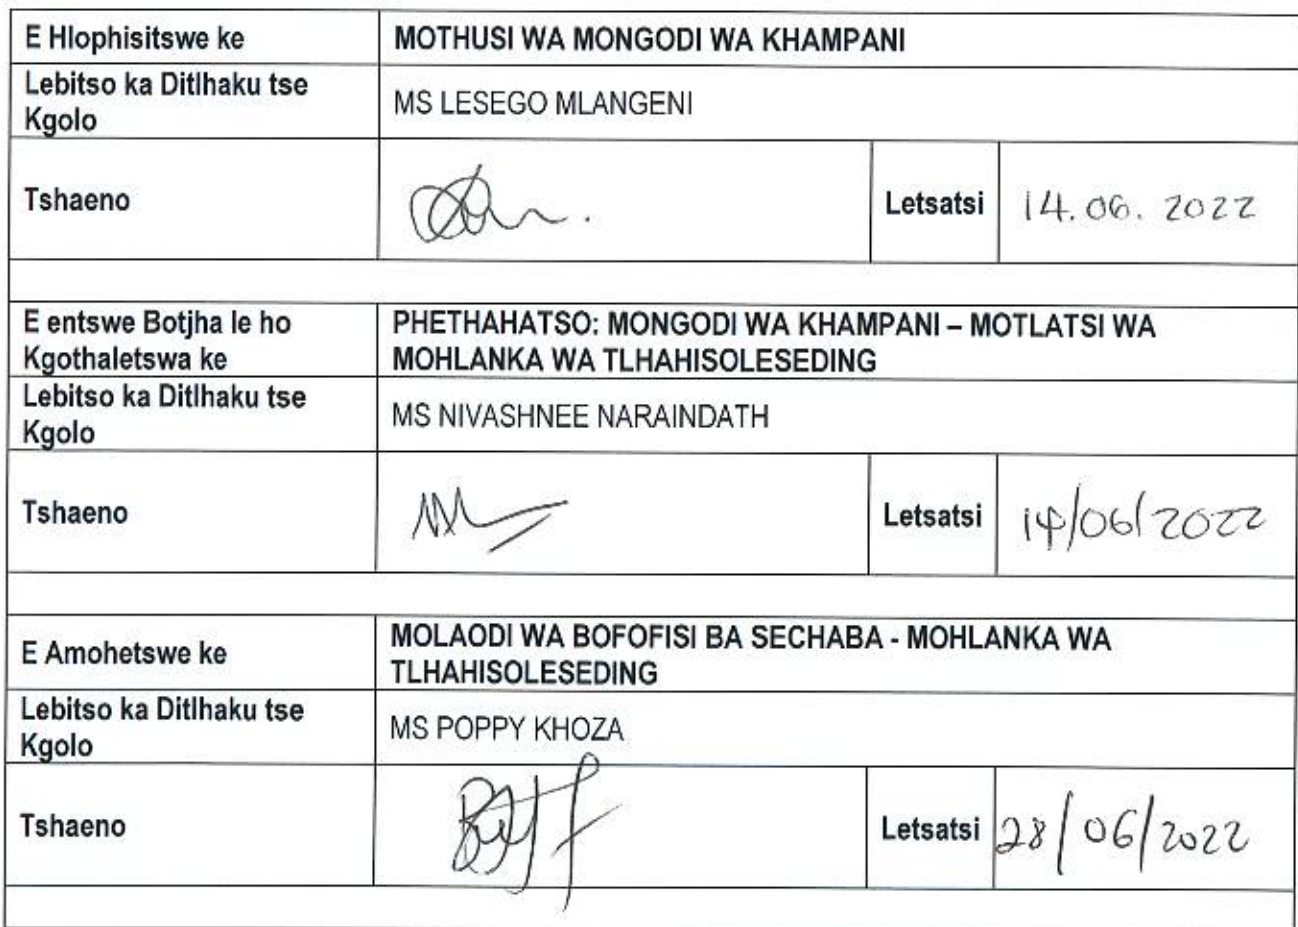 E Hlophisitswe ke
MOTHUSI WA MONGODI WA KHAMPANI
Lebitso ka Ditlhaku tse
Kgolo
MS LESEGO MLANGENI
Tshaeno
Letsatsi
14.06.2022
E entswe Botjha le ho
Kgothaletswa ke
PHETHAHATSO: MONGODI WA KHAMPANI – MOTLATSI WA
MOHLANKA WA TLHAHISOLESEDING
Lebitso ka Ditlhaku tse
Kgolo
MS NIVASHNEE NARAINDATH
Tshaeno
Letsatsi
14/06/2022
E Amohetswe ke
MOLAODI WA BOFOFISI BA SECHABA - MOHLANKA WA
TLHAHISOLESEDING
Lebitso ka Ditlhaku tse
Kgolo
MS POPPY KHOZA
Tshaeno
Letsatsi
28/06/2022